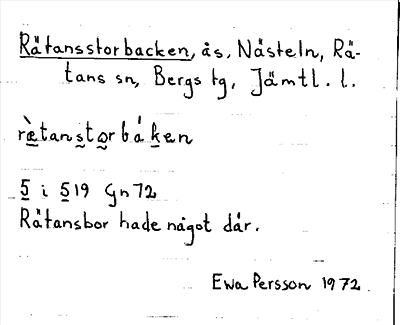 Rätansstorbacken, ås, Nästeln, Rä-
tans sn, Bergs tg, Jämtl. l.
rætanstorbáken
5 i 519 Gn 72
Rätansbor hade något där.
Ewa Persson 1972